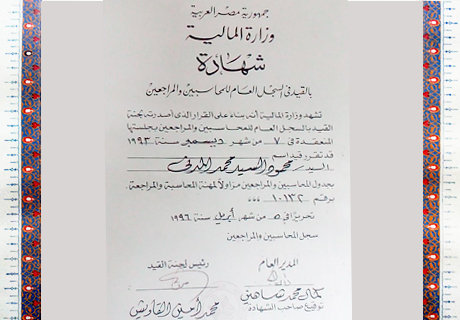 جمهورية مصر العربية
وزارة المالية
شهادة
بالقيد فى السجل العام للمحاسبين والمراجعين
تشهد وزارة المالية أنه بناء على القرار الذى أصدرته لجنة
القيد بالسجل العام للمحاسبين والمراجعين بجلستها
المنعقدة فى ٧ من شهر ديسمبر سنة ١٩٩٣
قد تقرر قيد اسم
السيد محمود السيد محمد المدنى
بجدول المحاسبين والمراجعين مزاولاً لمهنة المحاسبة والمراجعة
برقم ١٠١٣٢
تحريرا فى ٥ من شهر أبريل سنة ١٩٩٦
سجل المحاسبين والمراجعين
المدير العام
رئيس لجنة القيد
كمال محمد شاهين
توقيع صاحب الشهادة
محمد أمين القاويش